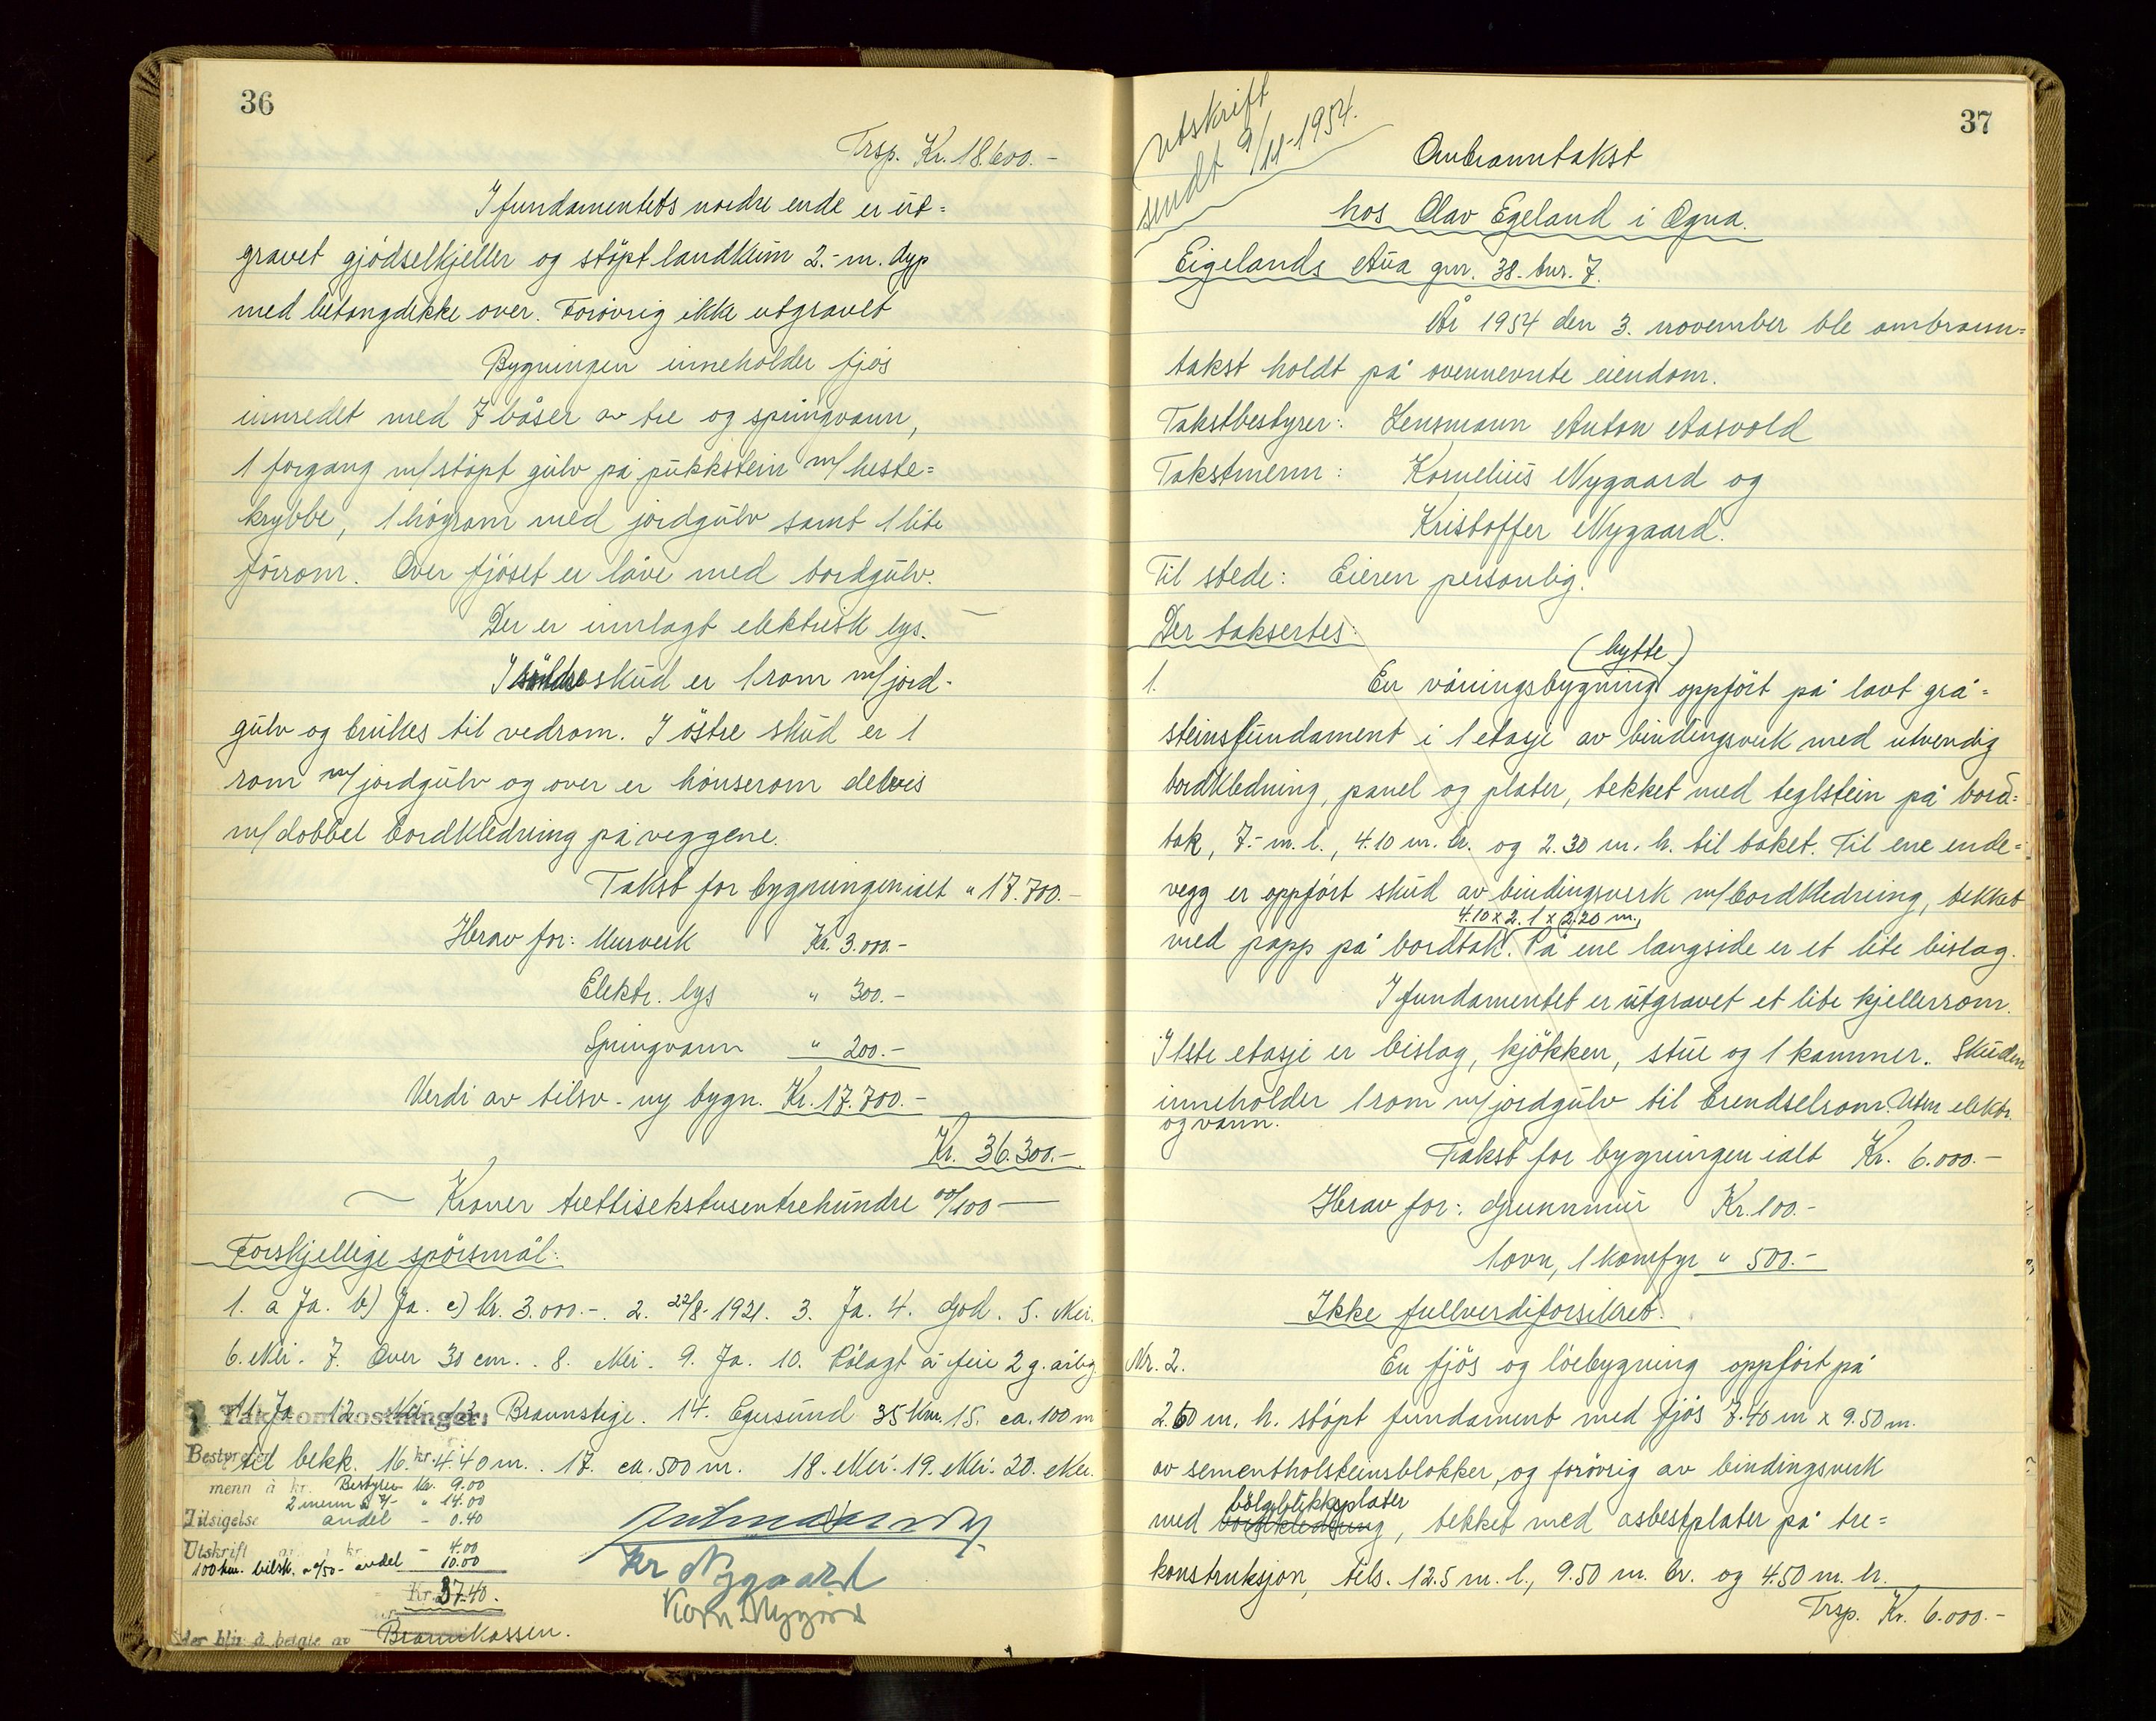 36
Trsp. Kr. 18.600.-
I fundamentets nordre ende er ut=
gravet gjødselkjeller og støpt landkum 2.- m. dyp
med betongdekke over. Forøvrig ikke utgravet
Bygningen inneholder fjøs
innredet med 7 båser av tre og springvann,
1 forgang m/støpt gulv på pukkstein m/heste=
krybbe, 1 høyrom med jordgulv samt 1 lite
fórrom. Over fjøset er låve med bordgulv.
Der er innlagt elektrisk lys. -
I søndre skud er 1 rom m/jord-
gulv og brukes til vedrom. I østre skud er 1
rom m/jordgulv og over er hønserom delvis
m/dobbel bordkledning på veggene.
Takst for bygningen ialt " 17.700.-
Herav for: Murverk Kr. 3.000.-
Elektr. lys " 300.-
Springvann " 200.-
Verdi av tilsv. ny bygn. Kr. 17.700.-
Kr. 36.300.-
Kroner trettisekstusentrehundre 00/100
Forskjellige spörsmål:
1. a Ja. b) Ja. c) kr. 3.000.-. 2. 22/8-1921. 3. Ja. 4. God. 5. Nei.
6. Nei. 7. Over 30 cm.. 8. Nei. 9. Ja. 10. Pålagt å feie 2 g. årlig
11. Ja 12. Nei 13. Brannstige. 14. Egersund 35 km. 15. ca. 100 m
Takstomkostninger:
til bekk. 16. kr. 4.40 m.. 17. ca. 500 m. 18. Nei. 19. Nei. 20. Nei.
Bestyrer
menn à kr. Bestyrer kr. 9.00
2 menn à 7/- " 14.00
Tilsigelse andel - 0.40
Utskrift - 4.00
100 km. bilsk. a 0/50- andel 10.00
Kr. 37.40.
der blir å betale av Brannkassen.
Kr Nygaard
Korn. Nygård
37
Utskrift
sendt 9/11-1954.
Ombranntakst
hos Olav Egeland i Ogna.
Eigelands Aua gnr. 38. bnr. 7.
År 1954 den 3. november ble ombrann=
takst holdt på ovennevnte eiendom.
Takstbestyrer: Lensmann Anton Aasvold
Takstmenn: Kornelius Nygaard og
Kristoffer Nygaard.
Til stede: Eieren personlig.
Der taksertes:
(hytte)
1. En våningsbygning oppført på lavt grå=
steinsfundament i 1 etasje av bindingsverk med utvendig
bordkledning, panel og plater, tekket med teglstein på bord=
tak, 7.- m. l., 4.10 m. br. og 2.30 m. h. til taket. Til ene ende=
vegg er oppført skud av bindingsverk m/bordkledning, tekket
4.10 x 2.1 x 2.20 m.
med papp på bordtak. På ene langside er et lite bislag.
I fundamentet er utgravet et lite kjellerrom.
I 1ste etasje er bislag, kjøkken, stue og 1 kammer. Skuden
inneholder 1 rom m/jordgulv til brendselrom. Uten elektr.
og vann.
Takst for bygningen ialt Kr. 6.000.-
Herav for: Grunnmur Kr. 100.-
1 ovn, 1 komfyr " 500.-
Ikke fullverdiforsikret.
Nr. 2. En fjøs og løebygning oppført på
2.60 m. h. støpt fundament med fjøs 7.40 m x 9.50 m.
av sementholsteinsblokker, og forøvrig av bindingsverk
bølgeblikkplater
med bordkledning, tekket med asbestplater på tre=
konstruksjon, tils. 12.5 m. l., 9.50 m. br. og 4.50 m. h.
Trsp. Kr. 6.000.-